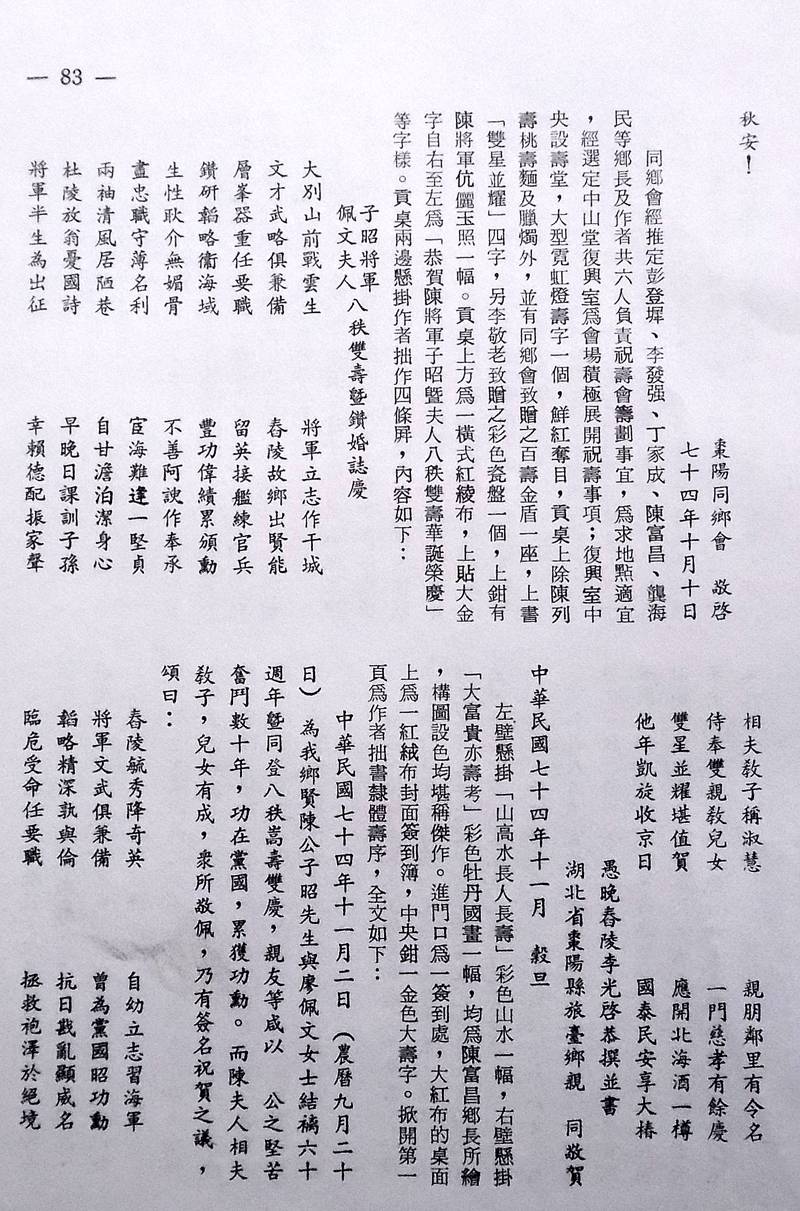 秋安！
棗陽同鄉會　敬啓
七十四年十月十日
同鄉會經推定彭登墀、李發强、丁家成、陳富昌、龔海
民等鄉長及作者共六人負責祝壽會籌劃事宜，爲求地點適宜
，經選定中山堂復興室爲會場積極展開祝壽事項；復興室中
央設壽堂，大型霓虹燈壽字一個，鮮紅奪目，貢桌上除陳列
壽桃壽麵及臘燭外，並有同鄉會致贈之百壽金盾一座，上書
「雙星並耀」四字，另李敬老致贈之彩色瓷盤一個，上鉗有
陳將軍伉儷玉照一幅。貢桌上方爲一橫式紅綾布，上貼大金
字自右至左爲「恭賀陳將軍子昭暨夫人八秩雙壽華誕榮慶」
等字樣。貢桌兩邊懸掛作者拙作四條屏，內容如下：
子昭將軍
佩文夫人
八秩雙壽暨鑽婚誌慶
大別山前戰雲生　將軍立志作干城
文才武略俱兼備　舂陵故鄉出賢能
層峯器重任要職　留英接艦練官兵
鑽研韜略衞海域　豐功偉績累頒勳
生性耿介無媚骨　不善阿諛作奉承
盡忠職守薄名利　宦海難違一堅貞
兩袖清風居陋巷　自甘澹泊潔身心
杜陵放翁憂國詩　早晚日課訓子孫
將軍半生為出征　幸賴德配振家聲
相夫教子稱淑慧　親朋鄰里有令名
侍奉雙親教兒女　一門慈孝有餘慶
雙星並耀堪值賀　應開北海酒一樽
他年凱旋收京日　國泰民安享大椿
愚晚舂陵李光啓恭撰並書
湖北省棗陽縣旅臺鄉親　同敬賀
中華民國七十四年十一月　穀旦
左壁懸掛「山高水長人長壽」彩色山水一幅，右壁懸掛
「大富貴亦壽考」彩色牡丹國畫一幅，均爲陳富昌鄉長所繪
，構圖設色均堪稱傑作。進門口爲一簽到處，大紅布的桌面
上爲一紅絨布封面簽到簿，中央鉗一金色大壽字。掀開第一
頁爲作者拙書隸體壽序，全文如下：
中華民國七十四年十一月二日（農曆九月二十
日）為我鄉賢陳公子昭先生與廖佩文女士結褵六十
週年暨同登八秩嵩壽雙慶，親友等咸以　公之堅苦
奮鬥數十年，功在黨國，累獲功勳。而陳夫人相夫
教子，兒女有成，衆所敬佩，乃有簽名祝賀之議，
頌曰：
舂陵毓秀降奇英　自幼立志習海軍
將軍文武俱兼備　曾為黨國昭功勳
韜略精深孰與倫　抗日戡亂顯威名
臨危受命任要職　拯救袍澤於絕境
— 83 —